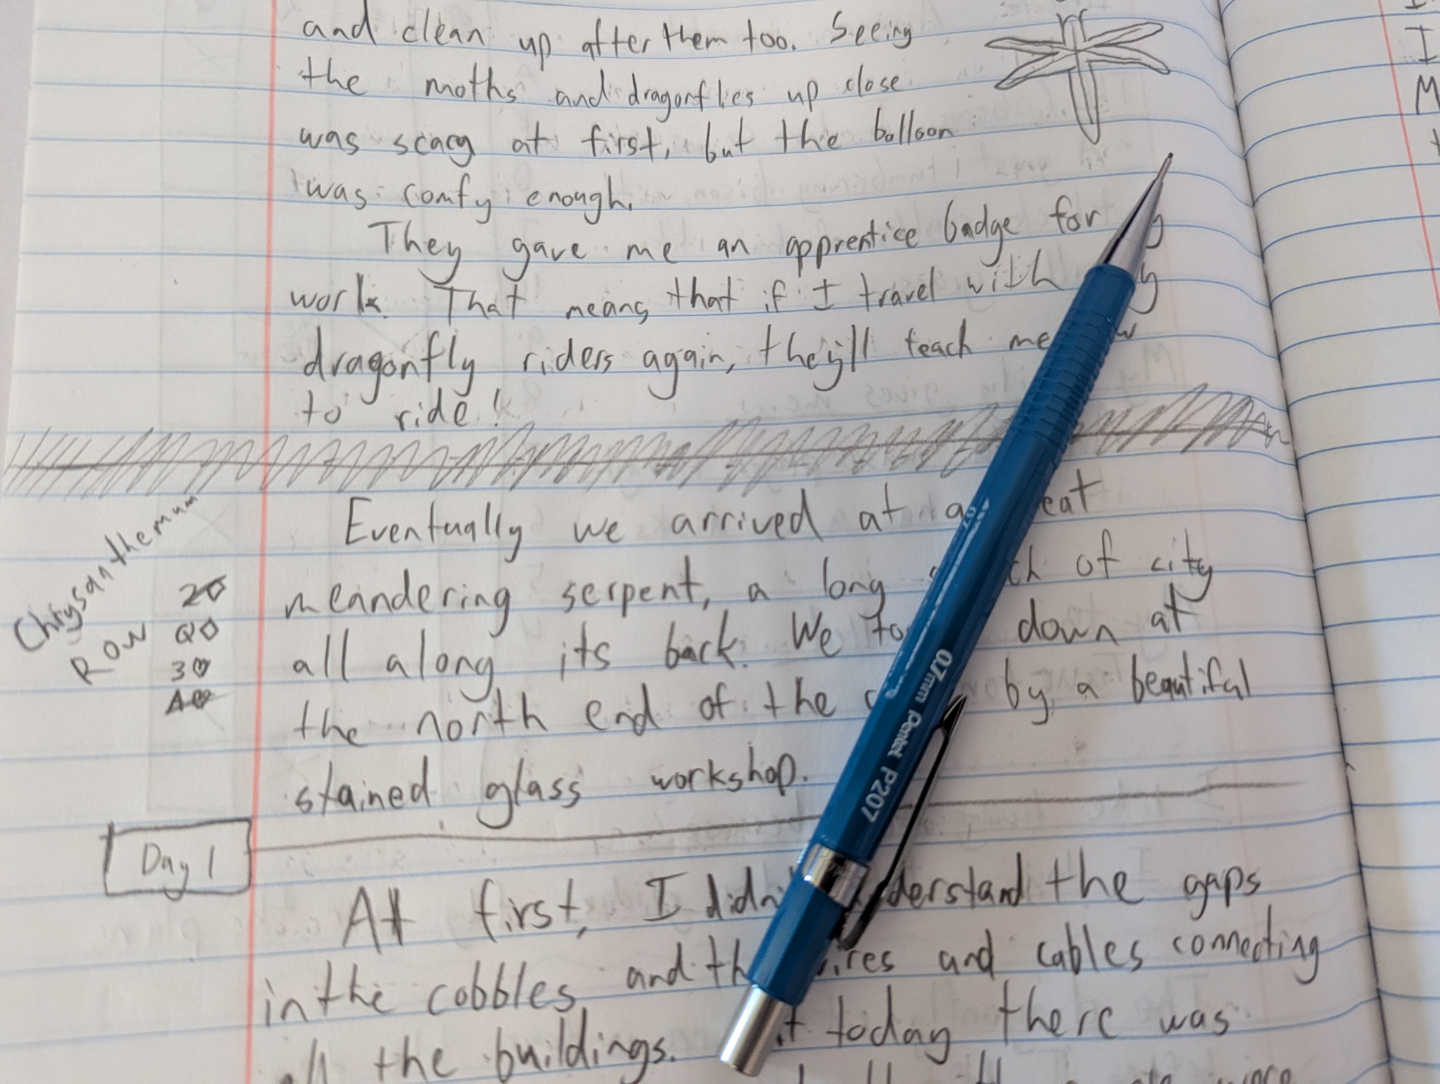 and clean up after them too. Seeing
the moths and dragonflies up close
was scary at first, but the balloon
was comfy enough.
They gave me an apprentice badge for
work. That means that if I travel with
dragonfly riders again, they'll teach me
to ride!
Chrysanthemum
Row
2♦
Q♦
3♥
A♥
Eventually we arrived at a
meandering serpent, a long of city
all along its back. We down at
the north end of the by a beautiful
stained glass workshop.
Day 1
At first, I didn't understand the gaps
in the cobbles, and the wires and cables connecting
all the buildings. today there was
0.7mm Pentel P207
I
M